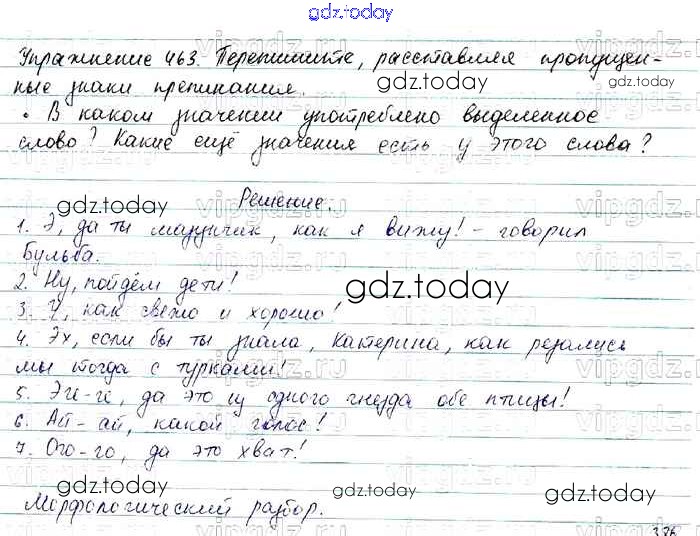 gdz.today
Упражнение 463. Перепишите, расставляя пропущен-
ные знаки препинания.
gdz.today
• В каком значении употреблено выделенное
слово? Какие ещё значения есть у этого слова?
gdz.today
Решение.
gdz.today
gdz.today
1. Э, да ты мазунчик, как я вижу! - говорил
Бульба.
2. Ну, пойдём дети!
gdz.today
3. У, как свежо и хорошо!
4. Эх, если бы ты знала, Катерина, как резались
мы тогда с турками!
5. Эге-ге, да это из одного гнезда обе птицы!
6. Ай-ай, какой голос!
7. Ого-го, да это хват!
gdz.today
gdz.today
gdz.today
Морфологический разбор.